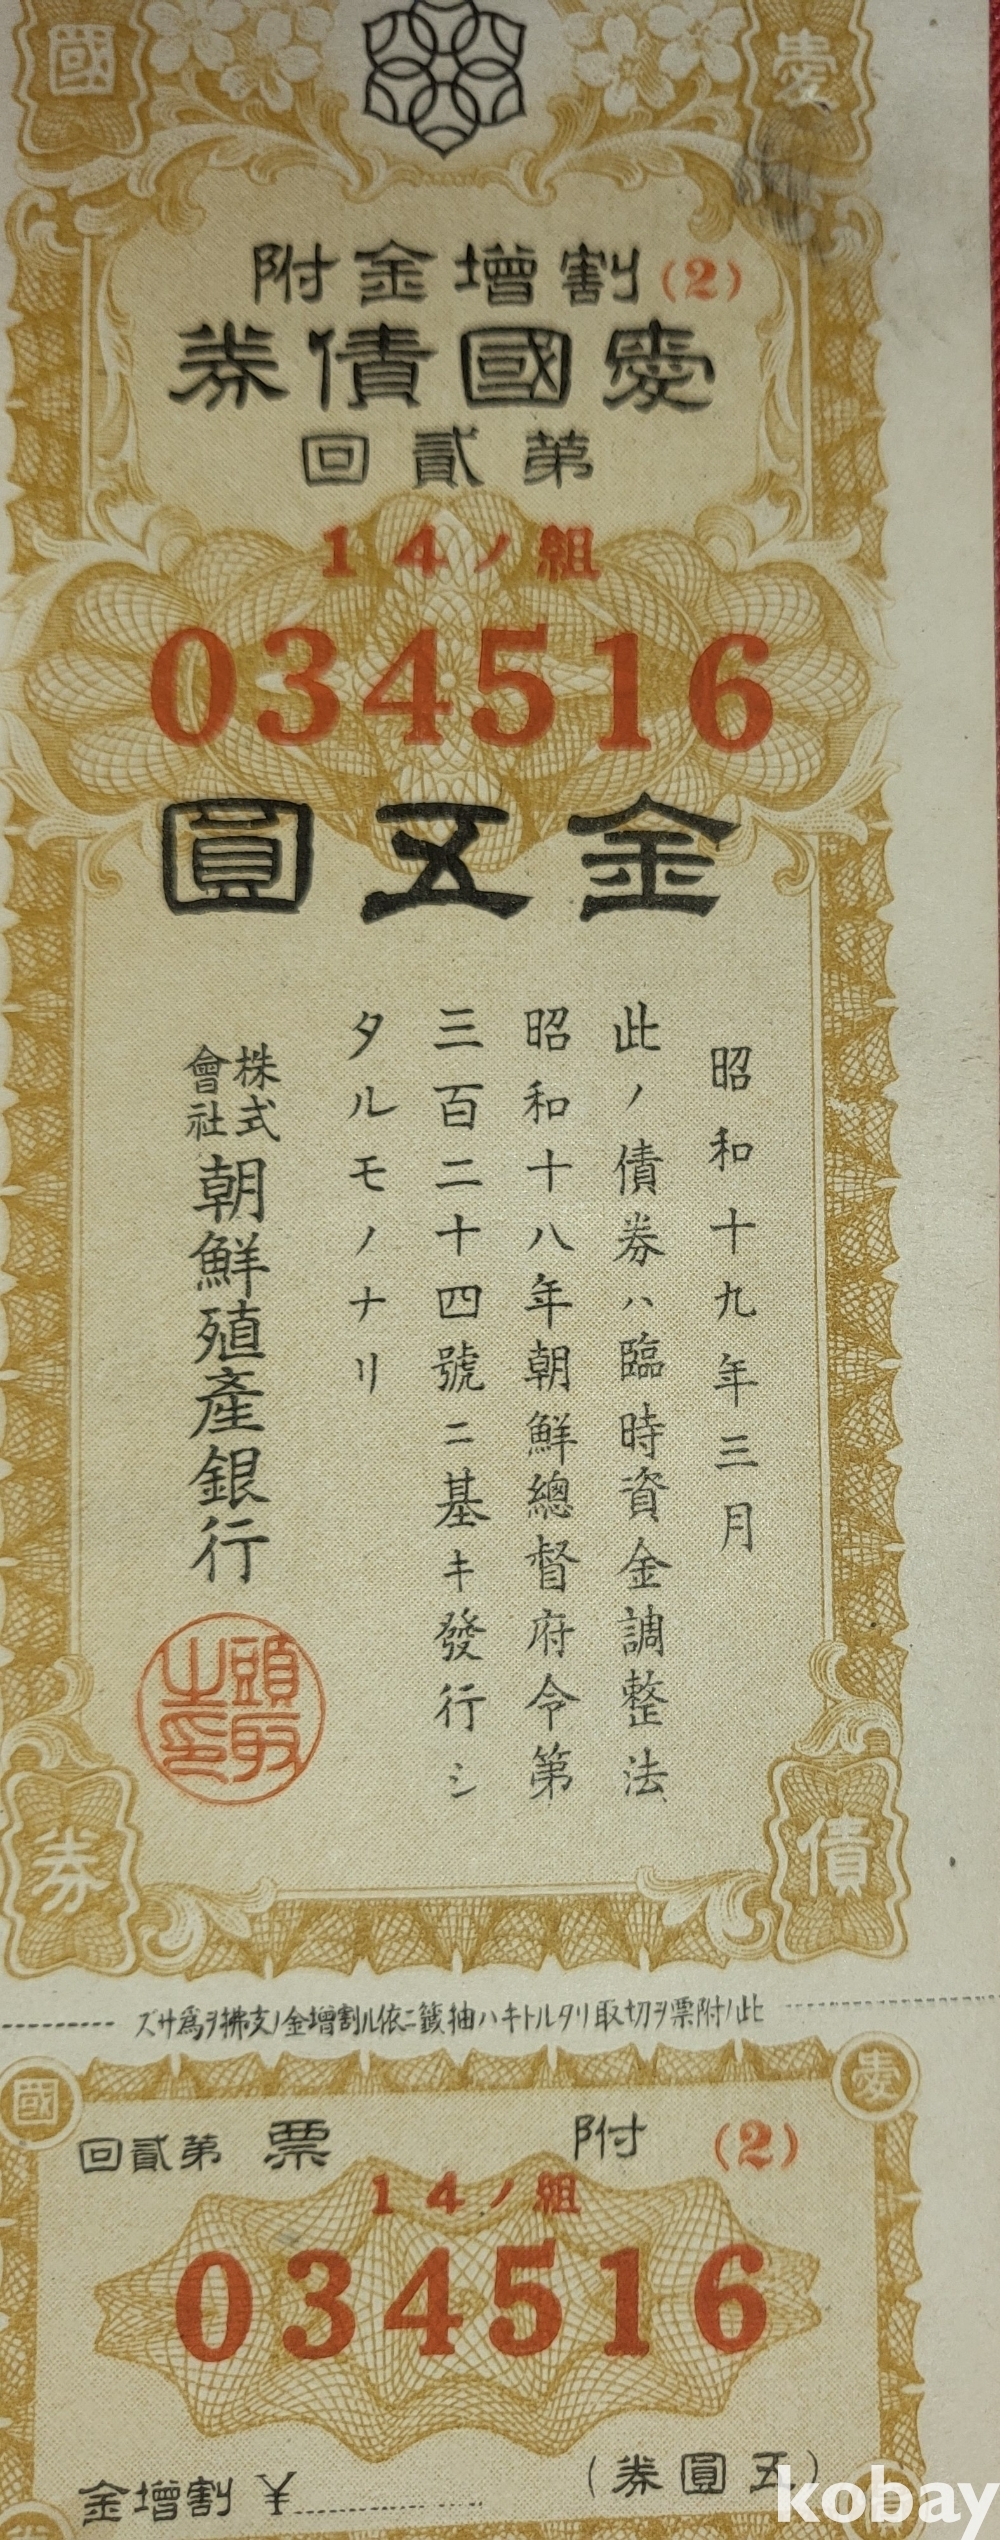 愛國
割增金附 (2)
愛國債券
第貳回
14ノ組
034516
金五圓
昭和十九年三月
此ノ債券ハ臨時資金調整法
昭和十八年朝鮮總督府令第
三百二十四號ニ基キ發行シ
タルモノナリ
株式會社朝鮮殖產銀行
頭取之印
債券
此ノ附票ヲ切取リタルトキハ抽籤ニ依ル割增金ノ支拂ヲ爲サズ
愛國
(2) 附票 第貳回
14ノ組
034516
(五圓券)
割增金 ¥
kobay